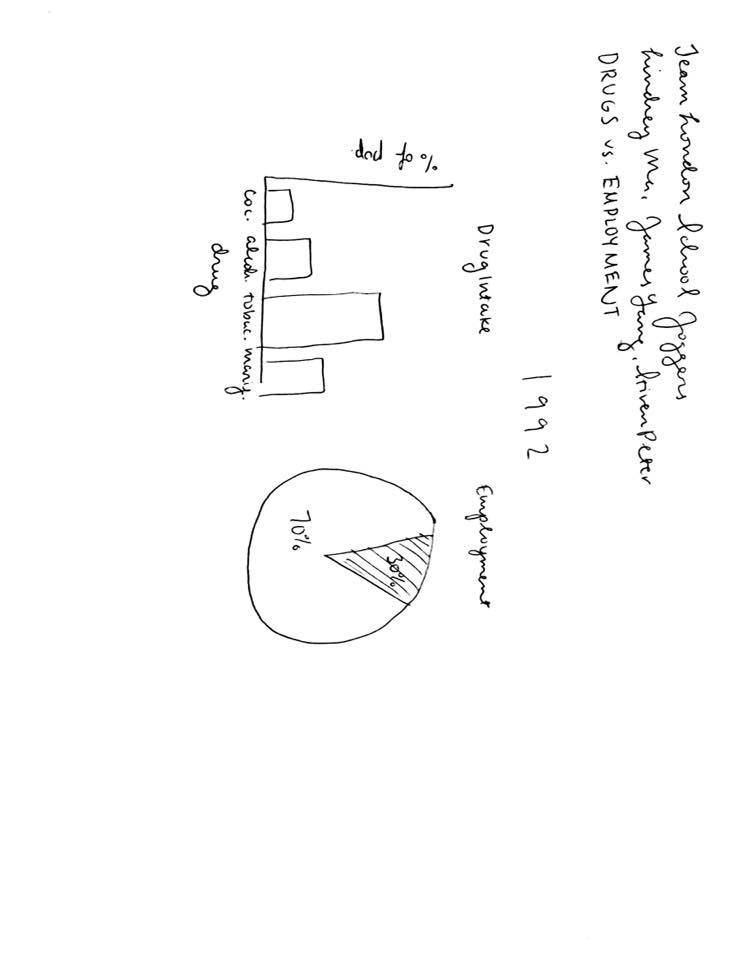 Team London School Joggers
Lindsey Ma, James Yang, Peter
DRUGS vs. EMPLOYMENT
1992
Drug Intake
% of pop
coc. alcoh. tobac. marij.
drug
Employment
30%
70%